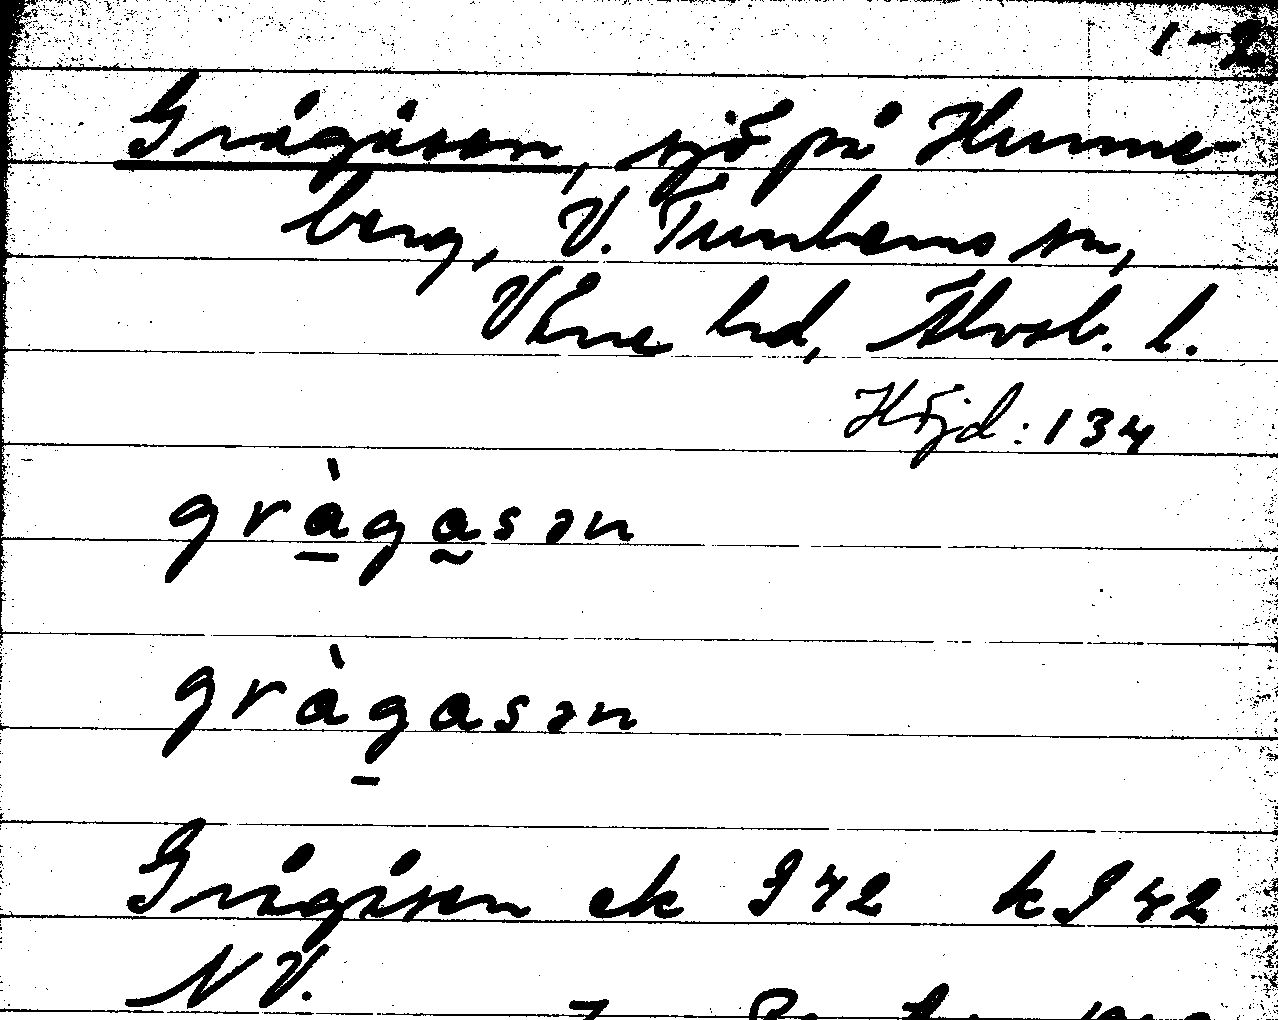 1-2
Grågåsen, sjö på Hunne-
berg, V. Tunhems sn,
Väne hd, Älvsb. l.
Höjd: 134
gràgasən
gràgasən
Grågåsen ek I 42 k I 42
NV.